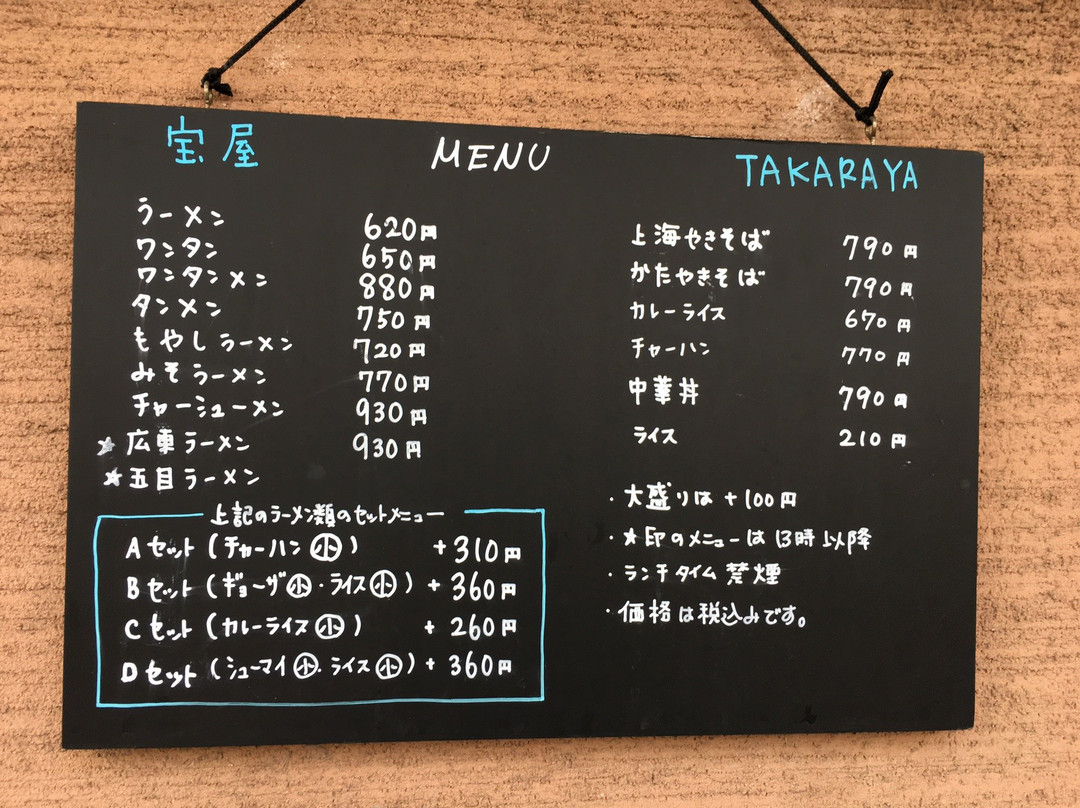 宝屋 MENU TAKARAYA
ラーメン 620円
ワンタン 650円
ワンタンメン 880円
タンメン 750円
もやしラーメン 720円
みそラーメン 770円
チャーシューメン 930円
★広東ラーメン 930円
★五目ラーメン
上記のラーメン類のセットメニュー
Aセット(チャーハン㊙小) +310円
Bセット(ギョーザ小・ライス小) +360円
Cセット(カレーライス小) +260円
Dセット(シューマイ小・ライス小) +360円
上海やきそば 790円
かたやきそば 790円
カレーライス 670円
チャーハン 770円
中華丼 790円
ライス 210円
・大盛りは+100円
・★印のメニューは13時以降
・ランチタイム禁煙
・価格は税込みです。